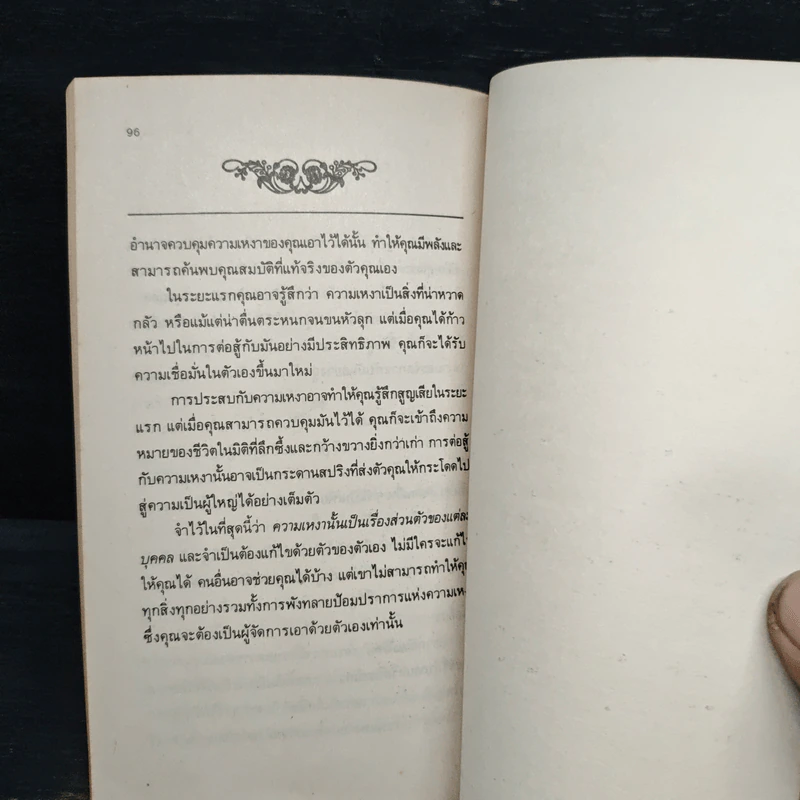 96
อำนาจควบคุมความเหงาของคุณเอาไว้ได้นั้น ทำให้คุณมีพลังและ
สามารถค้นพบคุณสมบัติที่แท้จริงของตัวคุณเอง
ในระยะแรกคุณอาจรู้สึกว่า ความเหงาเป็นสิ่งที่น่าหวาด
กลัว หรือแม้แต่น่าตื่นตระหนกจนขนหัวลุก แต่เมื่อคุณได้ก้าว
หน้าไปในการต่อสู้กับมันอย่างมีประสิทธิภาพ คุณก็จะได้รับ
ความเชื่อมั่นในตัวเองขึ้นมาใหม่
การประสบกับความเหงาอาจทำให้คุณรู้สึกสูญเสียในระยะ
แรก แต่เมื่อคุณสามารถควบคุมมันไว้ได้ คุณก็จะเข้าถึงความ
หมายของชีวิตในมิติที่ลึกซึ้งและกว้างขวางยิ่งกว่าเก่า การต่อสู้
กับความเหงานั้นอาจเป็นกระดานสปริงที่ส่งตัวคุณให้กระโดดไป
สู่ความเป็นผู้ใหญ่ได้อย่างเต็มตัว
จำไว้ในที่สุดนี้ว่า ความเหงานั้นเป็นเรื่องส่วนตัวของแต่ละ
บุคคล และจำเป็นต้องแก้ไขด้วยตัวของตัวเอง ไม่มีใครจะแก้ไข
ให้คุณได้ คนอื่นอาจช่วยคุณได้บ้าง แต่เขาไม่สามารถทำให้คุณ
ทุกสิ่งทุกอย่างรวมทั้งการพังทลายป้อมปราการแห่งความเห
ซึ่งคุณจะต้องเป็นผู้จัดการเอาด้วยตัวเองเท่านั้น